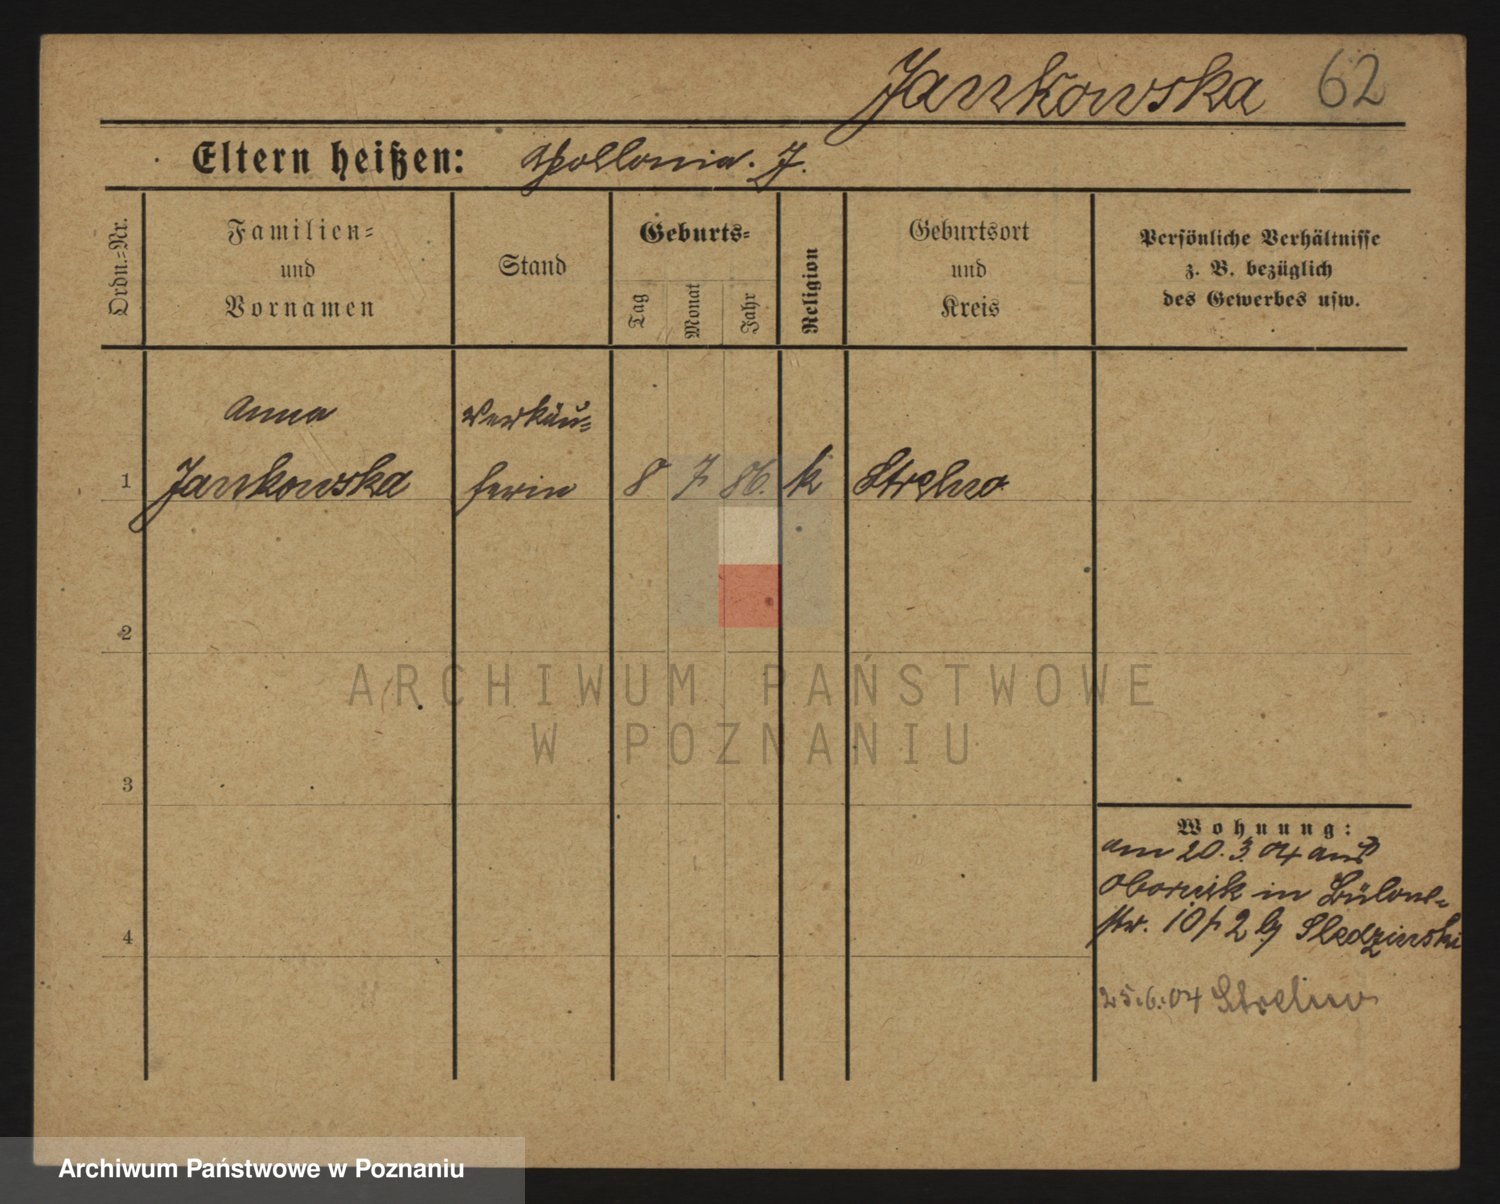 Jankowska 62
Eltern heißen: Apollonia. J.
Ordn.=Nr.
Familien=
und
Vornamen
Stand
Geburts=
Tag
Monat
Jahr
Religion
Geburtsort
und
Kreis
Persönliche Verhältnisse
z. B. bezüglich
des Gewerbes usw.
Anna
Jankowska
Verkäu=
ferin
1
8 7 86. k Strelno
2
3
4
Wohnung:
am 20.3.04 aus
Obornik in Bülow=
str. 10 2 Sledzinski
25.6.04 Strelno
ARCHIWUM PAŃSTWOWE
W POZNANIU
Archiwum Państwowe w Poznaniu